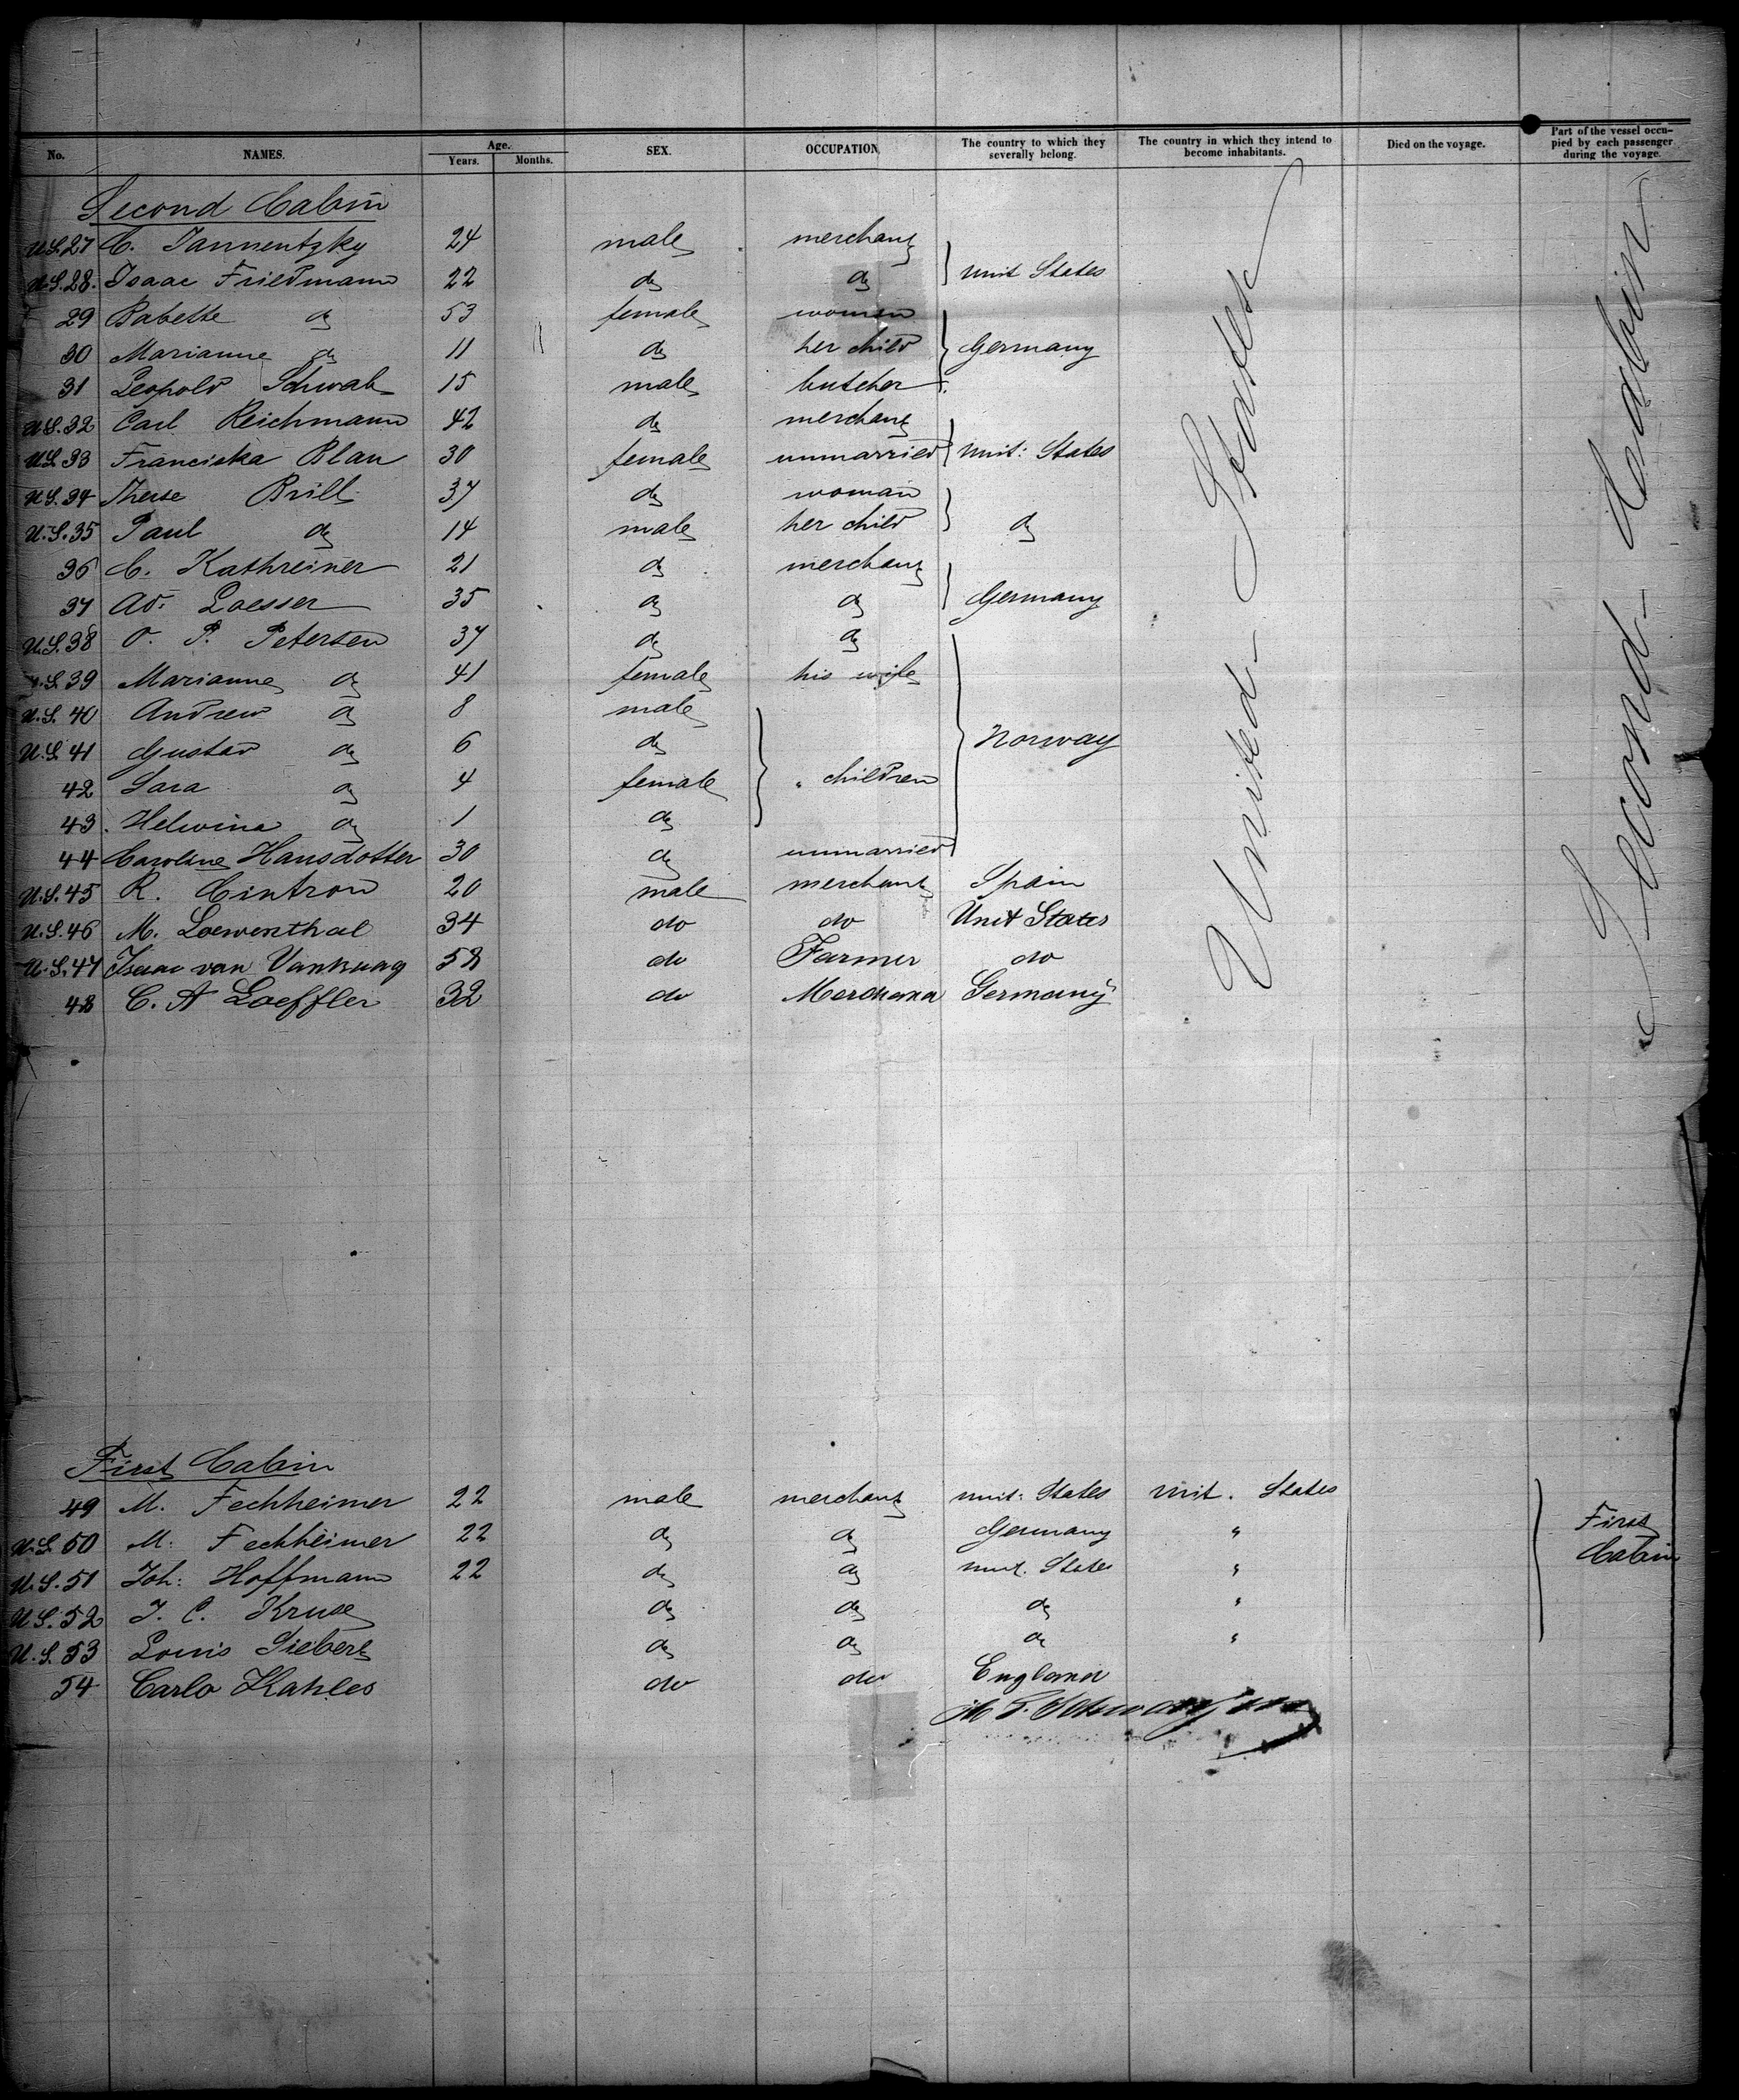 No. NAMES. Age. Years. Months. SEX. OCCUPATION. The country to which they severally belong. The country in which they intend to become inhabitants. Died on the voyage. Part of the vessel occupied by each passenger during the voyage.
Second Cabin
U.S. 27 C. Tannentzky 24 male merchant
U.S. 28. Isaac Friedmann 22 do do Unit States
29 Babette do 53 female women
30 Marianne do 11 do her child Germany
31 Leopold Schwab 15 male butcher
U.S. 32 Carl Reichmann 42 do merchant
U.S. 33 Franciska Blau 30 female unmarried Unit: States
U.S. 34 Therse Brill 37 do woman
U.S. 35 Paul do 14 male her child do
36 C. Kathreiner 21 do merchant
37 Ad: Loesser 35 do do Germany
U.S. 38 O. P. Petersen 37 do do
U.S. 39 Marianne do 41 female his wife
U.S. 40 Andrew do 8 male
U.S. 41 Gustav do 6 do Norway
42 Sara do 4 female children
43. Helwina do 1 do
44 Caroline Hansdotter 30 do unmarried
U.S. 45 R. Cintron 20 male merchant Spain
U.S. 46 M. Loewenthal 34 do do Unit States
U.S. 47 Isaac van 58 do Farmer do
48 C. A Loeffler 32 do Germany
United States
Second Cabin
First Cabin
49 M. Fechheimer 22 male merchant Unit: States Unit. States
U.S. 50 M. Fechheimer 22 do do Germany "
U.S. 51 Joh: Hoffmann 22 do do Unit. States "
U.S. 52 J. C. Kruse do do do "
U.S. 53 Louis Siebert do do do "
54 Carlo Kahles do do England
First
Cabin